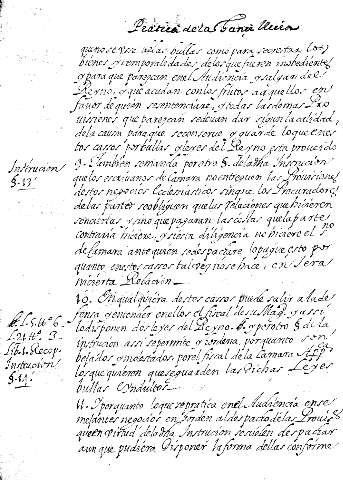 Practica de la Chancilleria
que no se use de las bullas como para secrestar los
bienes y temporalidades de los que fueren inobedientes
y para que parezcan en el Audiencia y salgan del
Reyno, y que acudan con los frutos a aquellos en
favor de quien se sentenciare, y todas las demas Pro
uissiones que parezcan se deuan dar segun la calidad
de la causa para que se conserue y guarde lo que en es
tos casos por bullas y leyes del Reyno esta proueido
Instrucion
§. 13
9. Tambien se manda por otro §. de la dha Instrucion
que los escriuanos de Camara no entreguen las Prouisiones
destos negocios Ecclesiasticos sin que los Procuradores
de las partes se obliguen que las Relaciones que hicieren
son ciertas y sino que pagaran las costas que la parte
contraria hiciere, y si esta diligencia no hiciere el
de Camara ante quien se despachare lo pague esto por
quanto en estos casos tal vez se hace, con
incierta Relacion
10. En qualquiera destos casos puede salir a la de
fensa y entender en ellos el fiscal de su Magd. y assi
lo disponen dos leyes del Reyno. y por otro §. de la
Lib. 1. Recop.
Instrucion
§. 14
Instrucion assi se permite y ordena, por quanto son
por el fiscal de la Camara
los que quieren que se guarden las dichas Leyes
bullas
11. Y por quanto lo que se pratica en el Audiencia en se
mejantes negocios en orden al despacho de las Prouiss
que en virtud de la dha Instrucion se suelen despachar
aunque pudiera disponer la forma dellas conforme